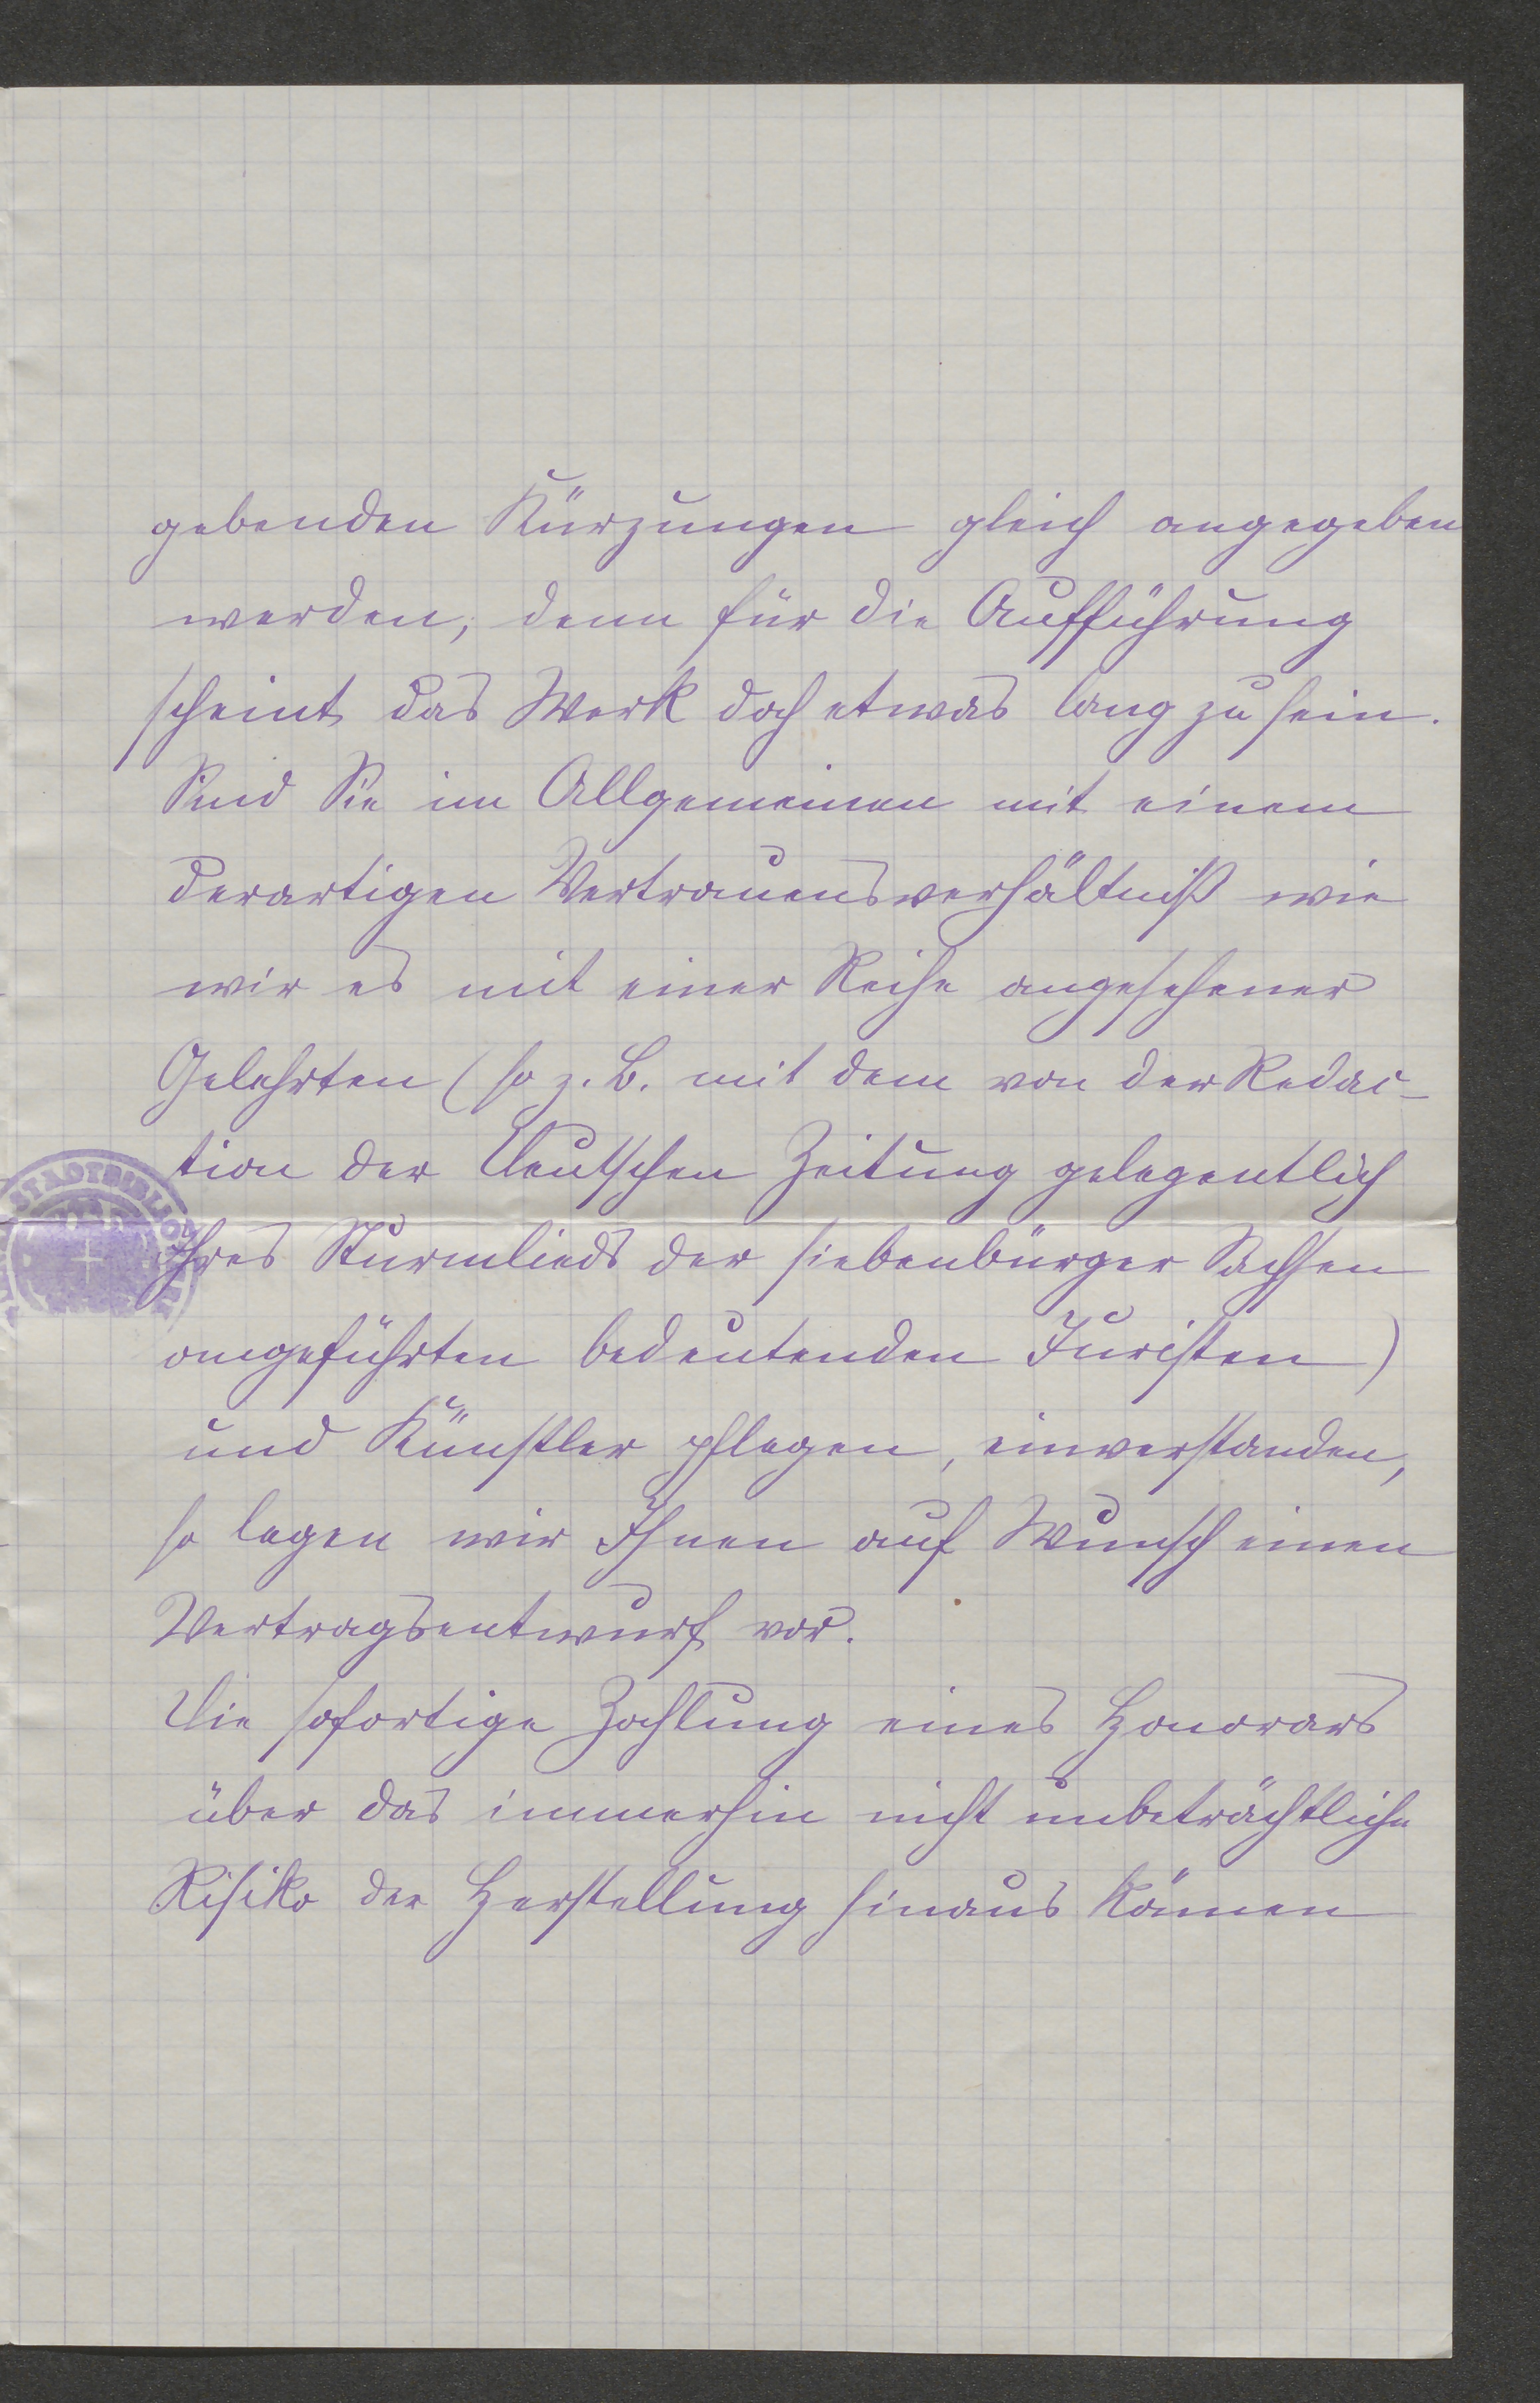 gebenden Kürzungen gleich angegeben
werden, denn für die Aufführung
scheint das Werk doch etwas lang zu sein.
Sind Sie im Allgemeinen mit einem
derartigen Vertrauensverhältniß wie
wir es mit einer Reihe angesehener
Gelehrten (so z. B. mit dem von der Redac-
tion der Deutschen Zeitung gelegentlich
STADTBIBLIO
Ihres Sturmlieds der siebenbürger Sachsen
angeführten bedeutenden Juristen)
und Künstler pflegen, einverstanden,
so legen wir Ihnen auf Wunsch einen
Vertragsentwurf vor.
Die sofortige Zahlung eines Honorars
über das immerhin nicht unbeträchtliche
Risiko der Herstellung hinaus können